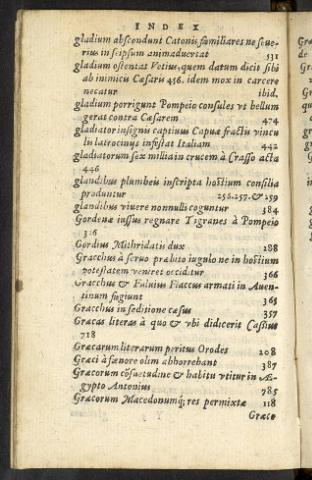 INDEX
gladium abscondunt Catonis familiares ne seue-
rius in seipsum animaduertat 531
gladium ostentat Votius, quem datum dicit sibi
ab inimicis Cæsaris 456. idem mox in carcere
necatur ibid.
gladium porrigunt Pompeio consules vt bellum
gerat contra Cæsarem 474
gladiator insignis captiuus Capuæ fractis vincu
lis latrocinijs infestat Italiam 442
gladiatorum sex millia in crucem à Crasso acta
446
glandibus plumbeis inscripta hostium consilia
produntur 256.257.& 259
glandibus viuere nonnulli coguntur 384
Gordenæ iussus regnare Tigranes à Pompeio
316
Gordius Mithridatis dux 288
Gracchus à seruo præbito iugulo ne in hostium
potestatem veniret occiditur 366
Gracchus & Fuluius Flaccus armati in Auen-
tinum fugiunt 365
Gracchus in seditione cæsus 357
Græcas literas à quo & vbi didicerit Cassius
718
Græcarum literarum peritus Orodes 208
Græci à fœnore olim abhorrebant 387
Græcorum cōsuetudine & habitu vtitur in Æ-
gypto Antonius 785
Græcorum Macedonumq; res permixtæ 118
Græce